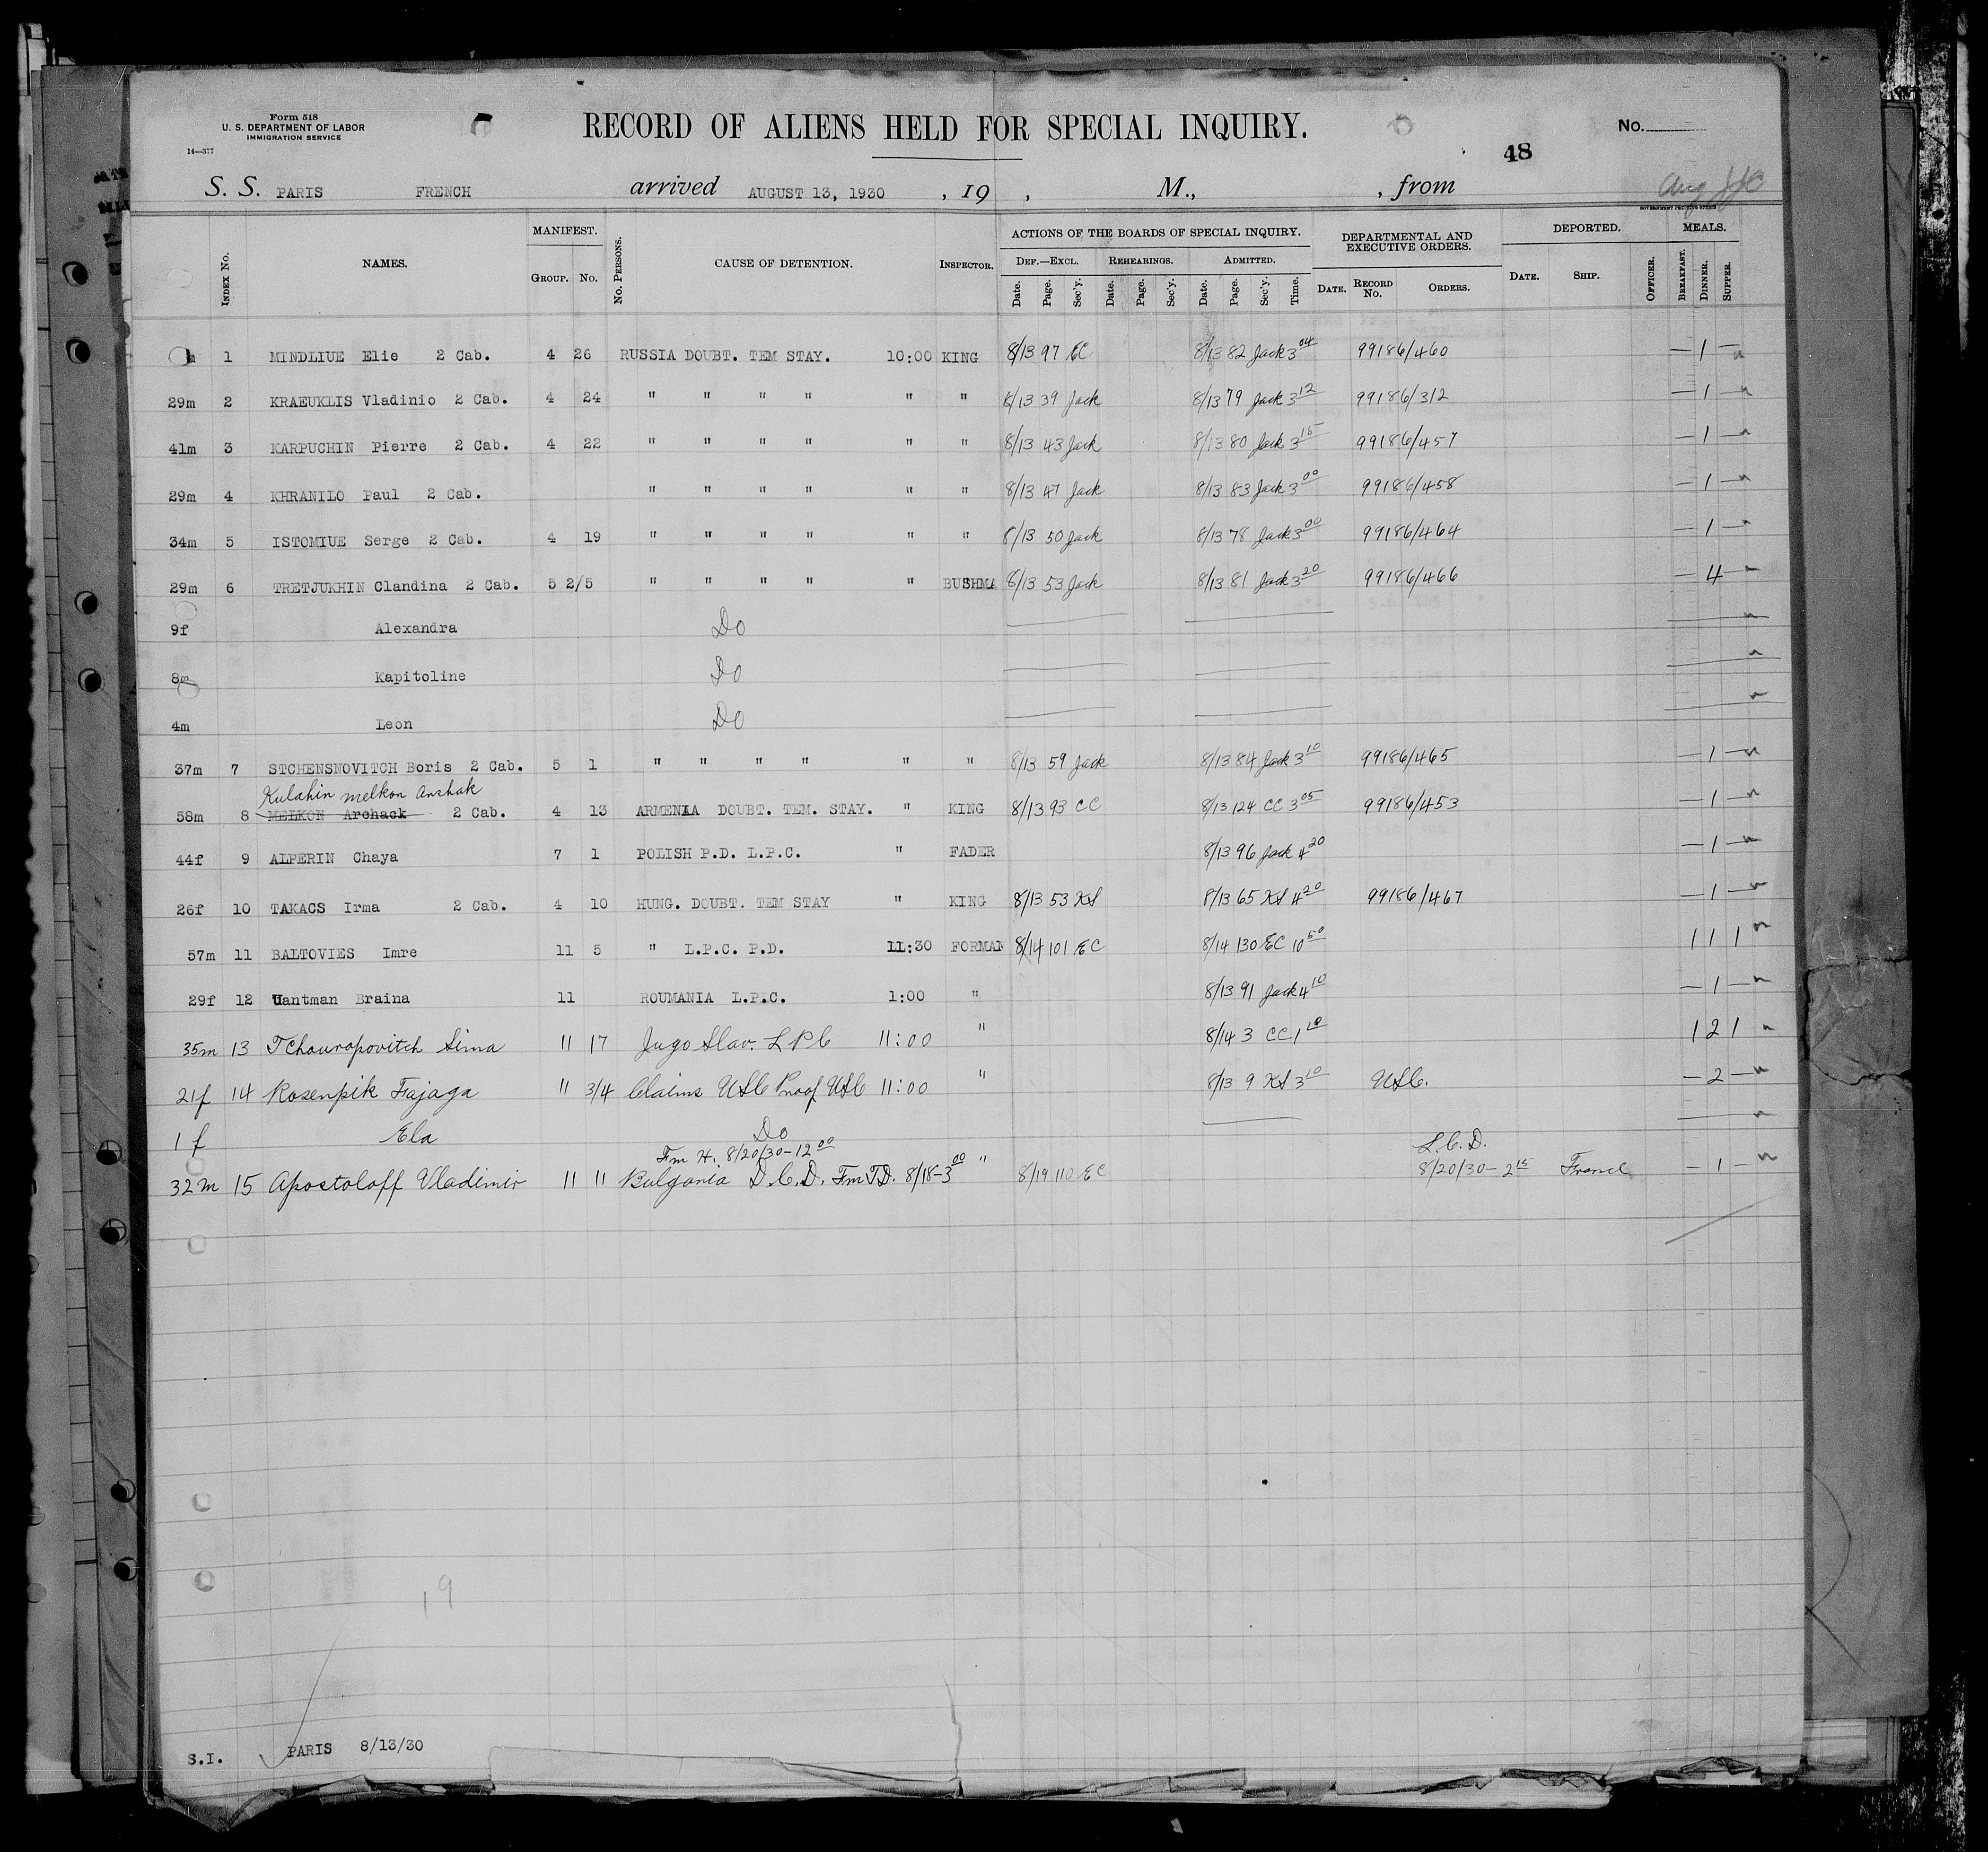 Form 518
U. S. DEPARTMENT OF LABOR
IMMIGRATION SERVICE
14—377
RECORD OF ALIENS HELD FOR SPECIAL INQUIRY.
No.
48
S. S. PARIS FRENCH arrived AUGUST 13, 1930 , 19 , M., , from
Aug
GOVERNMENT PRINTING OFFICE
INDEX No. NAMES. MANIFEST. GROUP. No. No. PERSONS. CAUSE OF DETENTION. INSPECTOR. ACTIONS OF THE BOARDS OF SPECIAL INQUIRY. DEF.—EXCL. Date. Page. Sec'y. REHEARINGS. Date. Page. Sec'y. ADMITTED. Date. Page. Sec'y. Time. DEPARTMENTAL AND EXECUTIVE ORDERS. DATE. RECORD No. ORDERS. DEPORTED. DATE. SHIP. OFFICER. MEALS. BREAKFAST. DINNER. SUPPER.
m 1 MINDLIUE Elie 2 Cab. 4 26 RUSSIA DOUBT. TEM STAY. 10:00 KING 8/13 97 EC 8/13 82 Jack 3 04 99186/460 — 1 —
29m 2 KRAEUKLIS Vladinio 2 Cab. 4 24 " " " " " " 8/13 39 Jack 8/13 79 Jack 3 12 99186/312 — 1 —
41m 3 KARPUCHIN Pierre 2 Cab. 4 22 " " " " " " 8/13 43 Jack 8/13 80 Jack 3 15 99186/457 — 1 —
29m 4 KHRANILO Paul 2 Cab. " " " " " " 8/13 47 Jack 8/13 83 Jack 3 00 99186/458 — 1 —
34m 5 ISTOMIUE Serge 2 Cab. 4 19 " " " " " " 8/13 50 Jack 8/13 78 Jack 3 00 99186/464 — 1 —
29m 6 TRETJUKHIN Clandina 2 Cab. 5 2/5 " " " " " BUSHMA 8/13 53 Jack 8/13 81 Jack 3 20 99186/466 — 4 —
9f Alexandra Do
8m Kapitoline Do
4m Leon Do
37m 7 STCHENSNOVITCH Boris 2 Cab. 5 1 " " " " " " 8/13 59 Jack 8/13 84 Jack 3 10 99186/465 — 1 —
Kulahin melkon Arshak
58m 8 MELKON Archack 2 Cab. 4 13 ARMENIA DOUBT. TEM. STAY. " KING 8/13 93 CC 8/13 124 CC 3 05 99186/453 — 1 —
44f 9 ALPERIN Chaya 7 1 POLISH P.D. L.P.C. " FADER 8/13 96 Jack 4 20 — 1 —
26f 10 TAKACS Irma 2 Cab. 4 10 HUNG. DOUBT. TEM STAY " KING 8/13 53 KS 8/13 65 KS 4 20 99186/467 — 1 —
57m 11 BALTOVIES Imre 11 5 " L.P.C. P.D. 11:30 FORMAN 8/14 101 EC 8/14 130 EC 10 50 1 1 1
29f 12 Uantman Braina 11 ROUMANIA L.P.C. 1:00 " 8/13 91 Jack 4 10 — 1 —
35m 13 Tchouropovitch Sima 11 17 Jugo Slav. L P C 11:00 " 8/14 3 CC 1 10 1 2 1
21f 14 Rosenpik Fajaga 11 3/4 Claims USC Proof USC 11:00 " 8/13 9 KS 3 10 USC. — 2 —
1 f Ela Do
Fm H. 8/20/30 - 12 00 L.C.D.
32m 15 Apostoloff Vladimir 11 11 Bulgaria D.C.D. Fm T.D. 8/18 - 3 00 " 8/19 110 EC 8/20/30 - 2 15 France — 1 —
19
S.I. PARIS 8/13/30